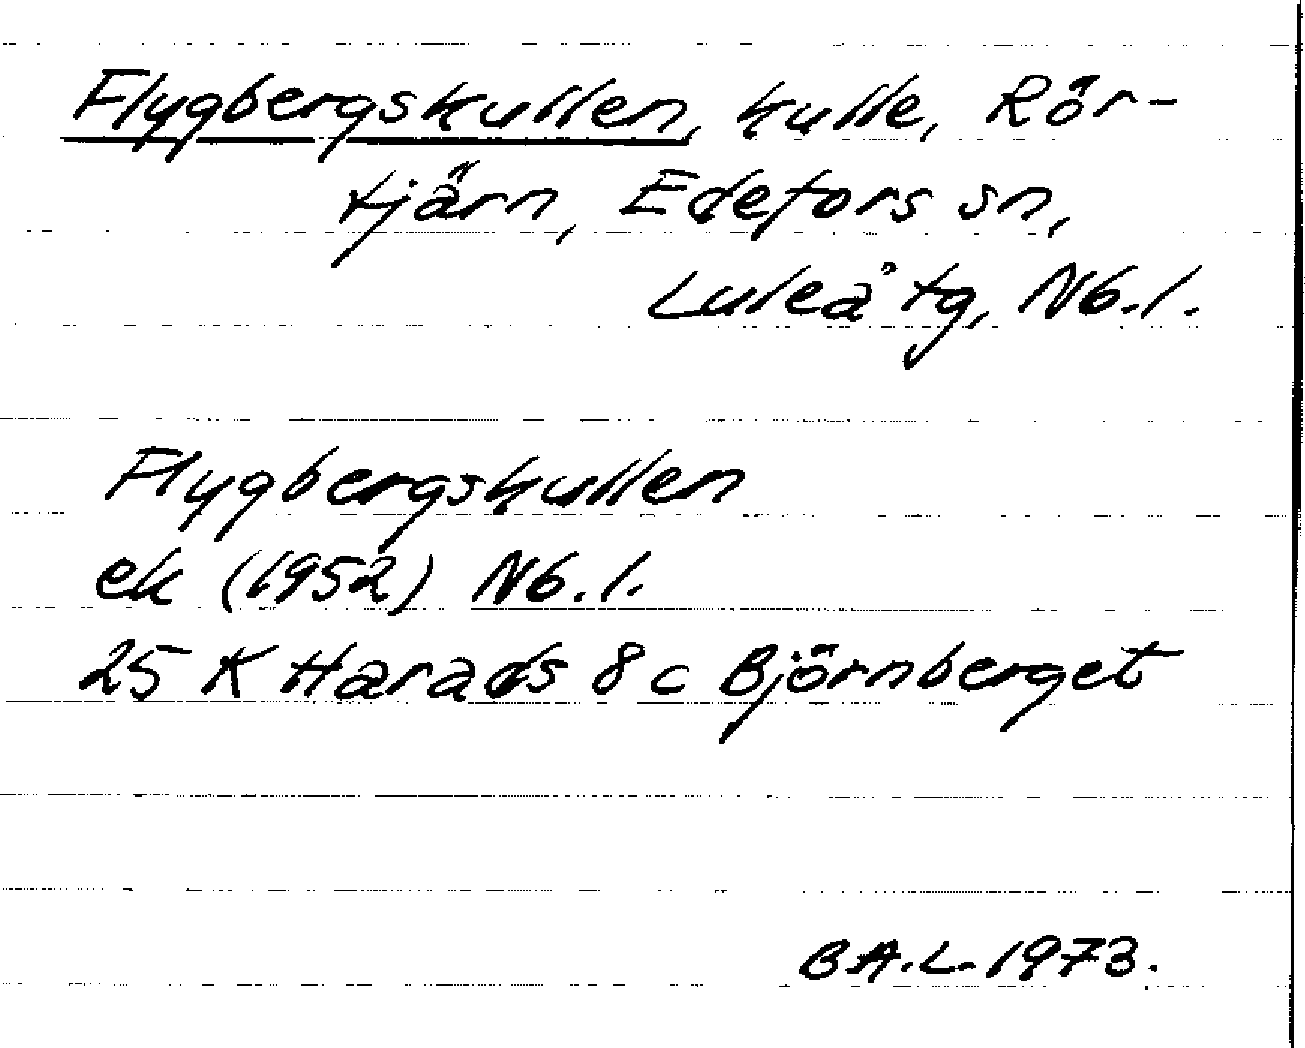 Flygbergskullen, kulle, Rör-
tjärn, Edefors sn,
Luleå tg, Nb.l.
Flygbergskullen
ek (1952) Nb.l.
25 K Harads 8 c Björnberget
B.A.L. 1973.